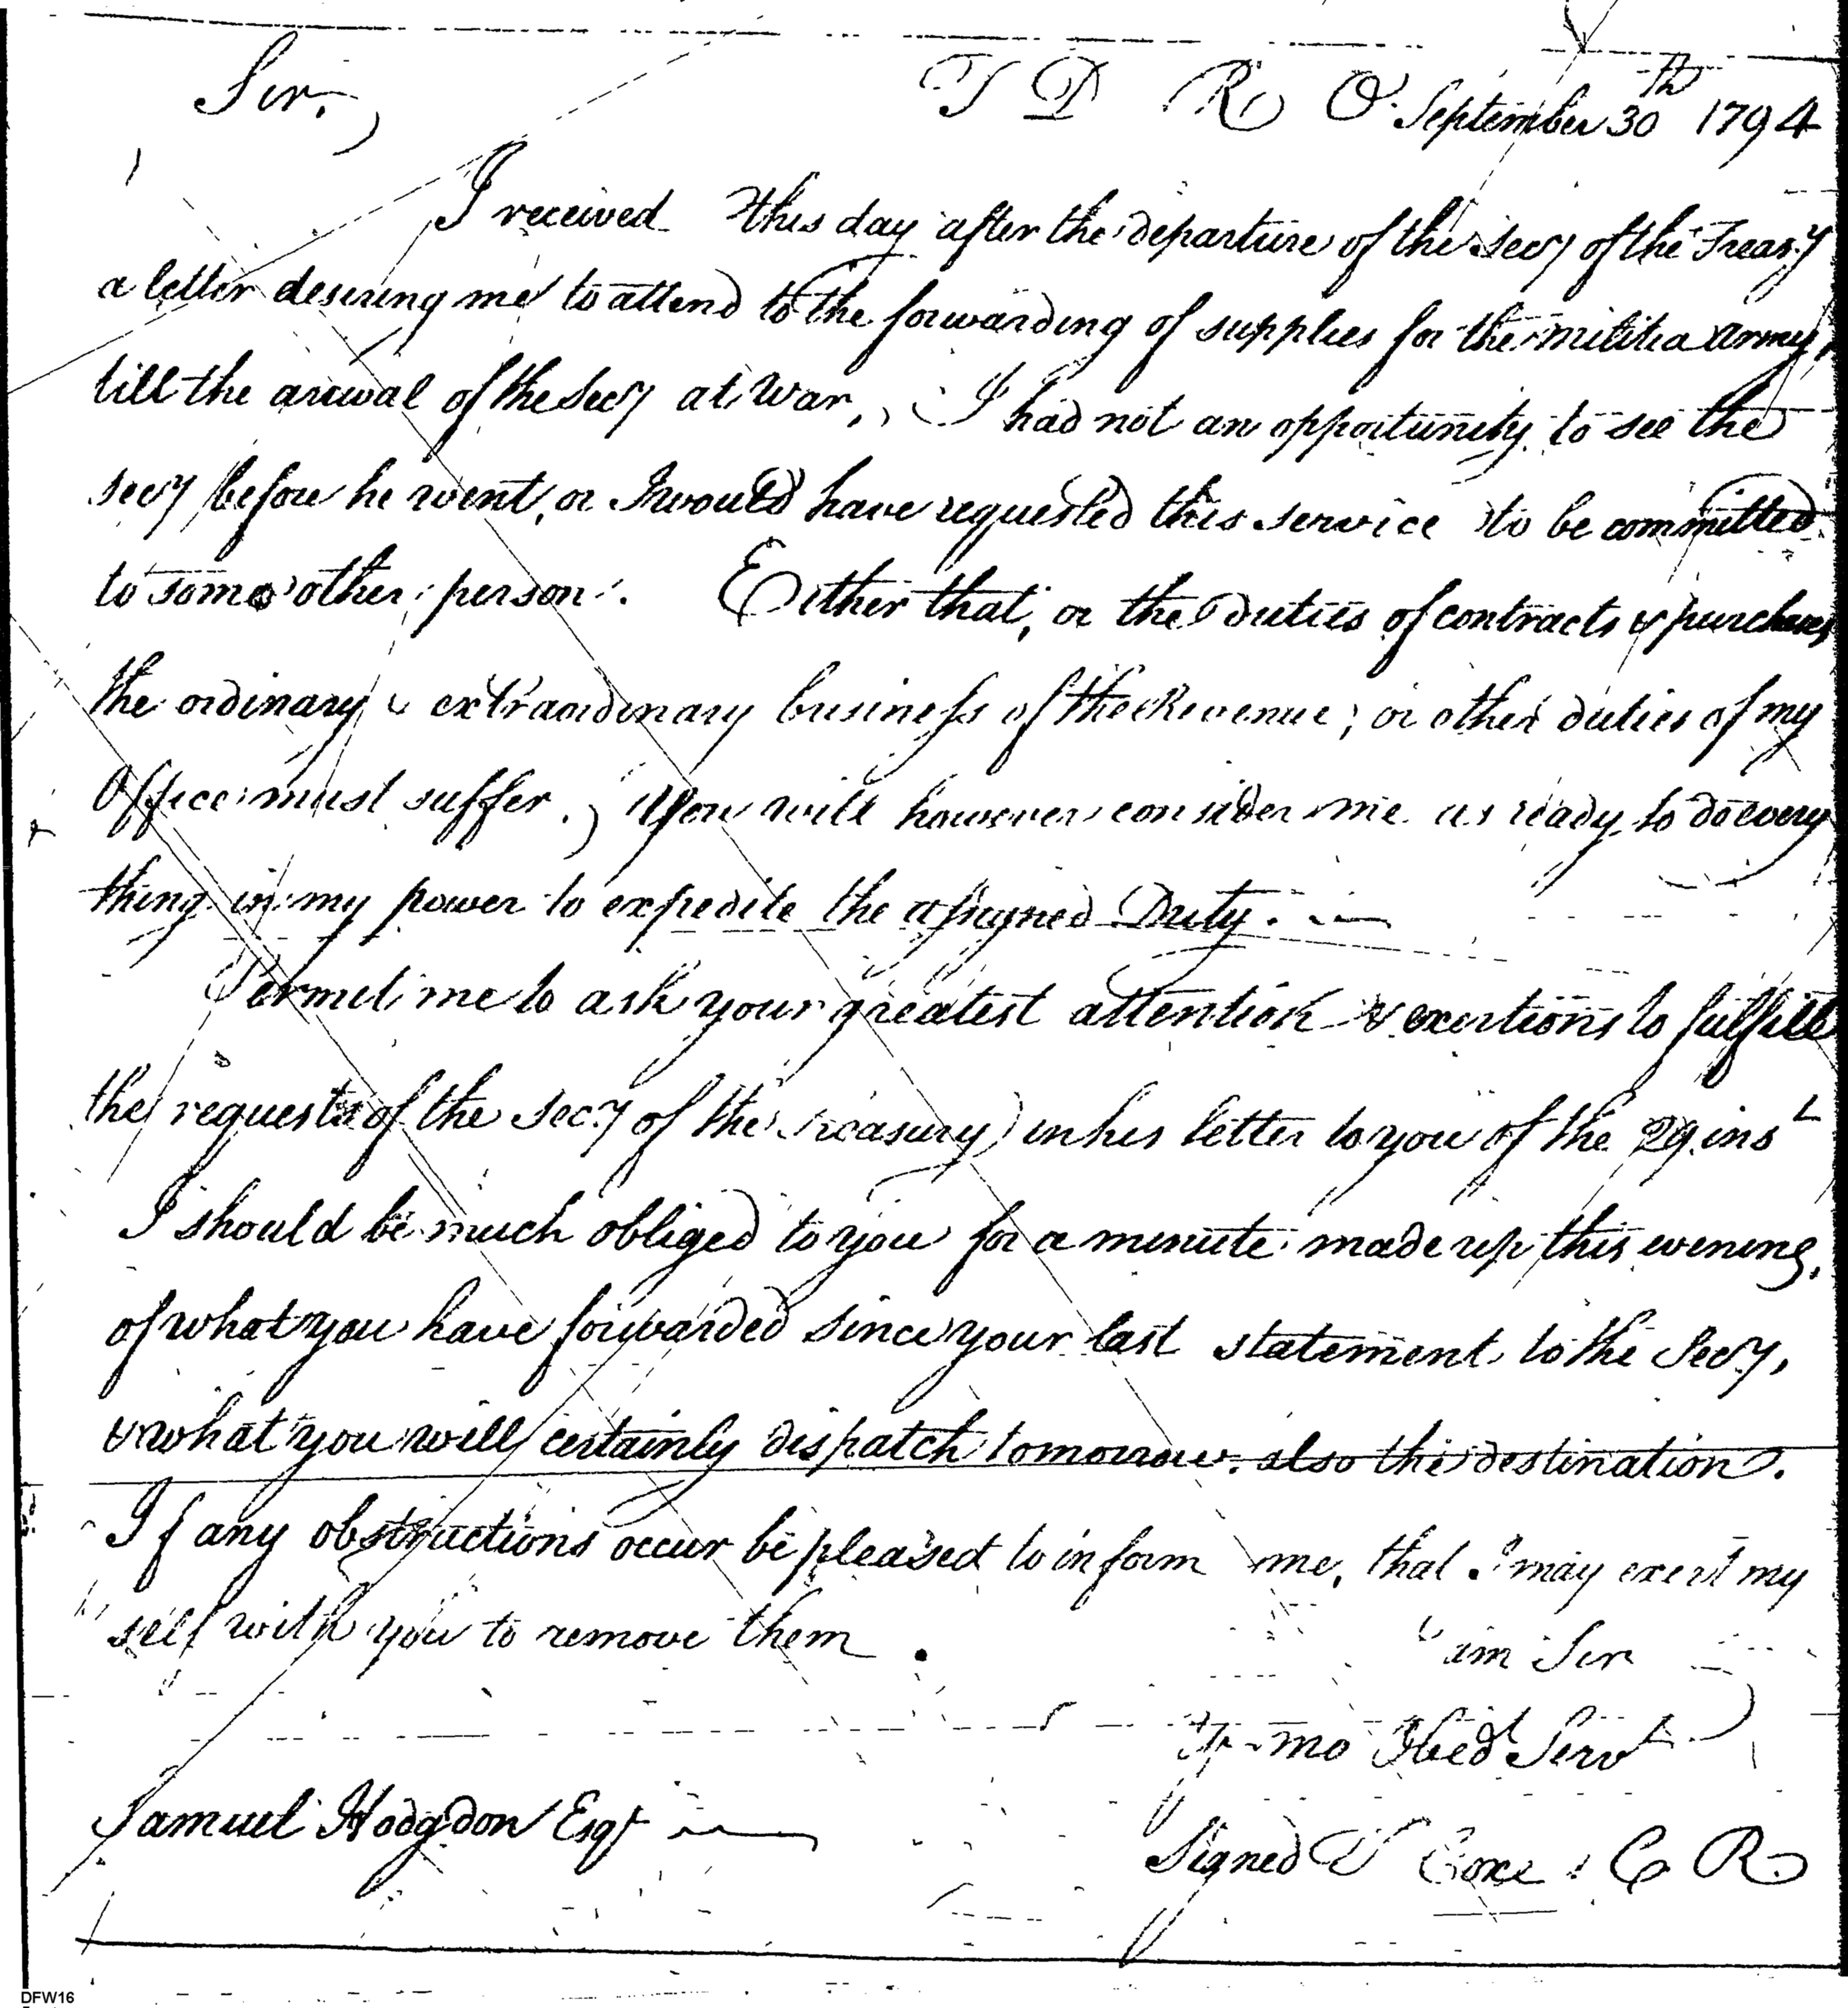 Sir,
T D R O. September 30th 1794
I received this day after the departure of the Secy of the Treasy
a letter desiring me to attend to the forwarding of supplies for the militia army,
till the arrival of the Secy at War, I had not an opportunity to see the
secy before he went, or I would have requested this service to be committed
to some other person. Either that, or the duties of contracts & purchases,
the ordinary & extraordinary business of the Revenue, or other duties of my
Office must suffer. You will however consider me as ready to do every
thing in my power to expedite the assigned Duty.
Permit me to ask your greatest attention & exertions to fulfill
the requests of the Secy of the treasury in his letter to you of the 29. inst
I should be much obliged to you for a minute made up this evening,
of what you have forwarded since your last statement to the Secy,
& what you will certainly dispatch tomorrow. also the destination.
If any obstructions occur be pleased to inform me, that I may exert my
self with you to remove them.
am Sir
mo Obedt Servt
Samuel Hodgdon Esqr
Signed T Coxe C R
DFW16